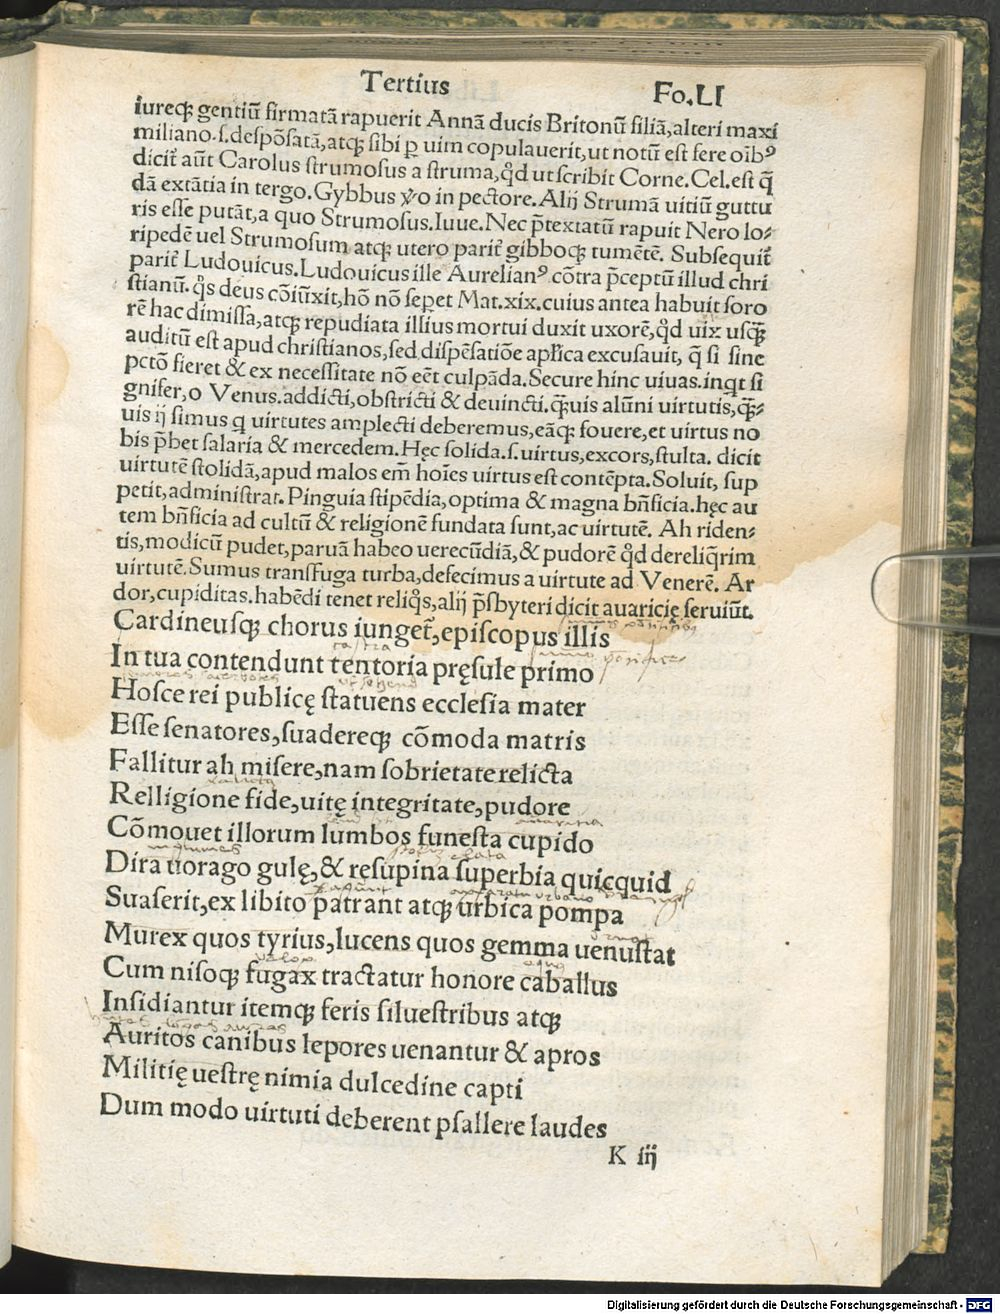 Tertius
Fo.LI
iureqꝫ gentiū firmatā rapuerit Annā ducis Britonū filiā,alteri maxi
miliano.ſ.deſpõſatā,atqꝫ ſibi ꝑ uim copulauerit,ut notū eſt fere oīb⁹
dicit᷑ aūt Carolus ſtrumoſus a ſtruma,qd̉ ut ſcribit Corne.Cel.eſt q̄
dā extātia in tergo.Gybbus ỽo in pectore.Alij Strumā uitiū guttu
ris eſſe putāt,a quo Strumoſus.Iuue.Nec p̄textatū rapuit Nero lo⸗
ripedē uel Strumoſum atqꝫ utero parit᷑ gibboqꝫ tumētē. Subſequit᷑
parit᷑ Ludouicus.Ludouicus ille Aurelian⁹ cõtra p̄ceptū illud chri
ſtianū.qͦs deus cõiūxit,hõ nõ ſeꝑet Mat.xix.cuius antea habuit ſoro
rē hac dimiſſa,atqꝫ repudiata illius mortui duxit uxorē,qd̉ uix uſqꝫ̄
auditū eſt apud chriſtianos,ſed diſpēſatiõe apl̄ica excuſauit, q̄ ſi ſine
pctõ fieret & ex neceſſitate nõ eēt culpāda.Secure hinc uiuas.inqt ſi
gnifer,o Venus.addicti,obſtricti & deuincti.qꝫ̄uis alūni uirtutis,qꝫ̄⸗
uis ij ſimus q uirtutes amplecti deberemus,eāqꝫ fouere,et uirtus no
bis p̄bet ſalaria & mercedem.Hęc ſolida.ſ.uirtus,excors,ſtulta. dicit
uirtutē ſtolidā,apud malos em̄ hoīes uirtus eſt contēpta.Soluit, ſup
petit,adminiſtrat.Pinguia ſtipēdia,optima & magna bn̄ficia.hęc au
tem bn̄ficia ad cultū & religionē fundata ſunt,ac uirtutē. Ah riden⸗
tis,modicū pudet,paruā habeo uerecūdiā,& pudorē qd̉ dereliq̄rim
uirtutē.Sumus transfuga turba,defecimus a uirtute ad Venerē. Ar
dor,cupiditas.habēdi tenet reliqͦs,alij p̄ſbyteri dicit auaricię ſeruiūt.
Cardineuſqꝫ chorus iunget᷑,epiſcopus illis
caſtra
In tua contendunt tentoria pręſule primo
Hoſce rei publicę ſtatuens eccleſia mater
Eſſe ſenatores,ſuadereqꝫ cõmoda matris
Fallitur ah miſere,nam ſobrietate relicta
Relligione fide,uitę integritate,pudore
auaritia
Cõmouet illorum lumbos funeſta cupido
elata
Dira uorago gulę,& reſupina ſuperbia quicquid
Suaſerit,ex libito patrant atqꝫ urbica pompa
ornat
Murex quos tyrius,lucens quos gemma uenuſtat
velox
equus
Cum niſoqꝫ fugax tractatur honore caballus
Inſidiantur itemqꝫ feris ſilueſtribus atqꝫ
Auritos canibus lepores uenantur & apros
Militię ueſtrę nimia dulcedine capti
Dum modo uirtuti deberent pſallere laudes
K iij
Digitalisierung gefördert durch die Deutsche Forschungsgemeinschaft - DFG